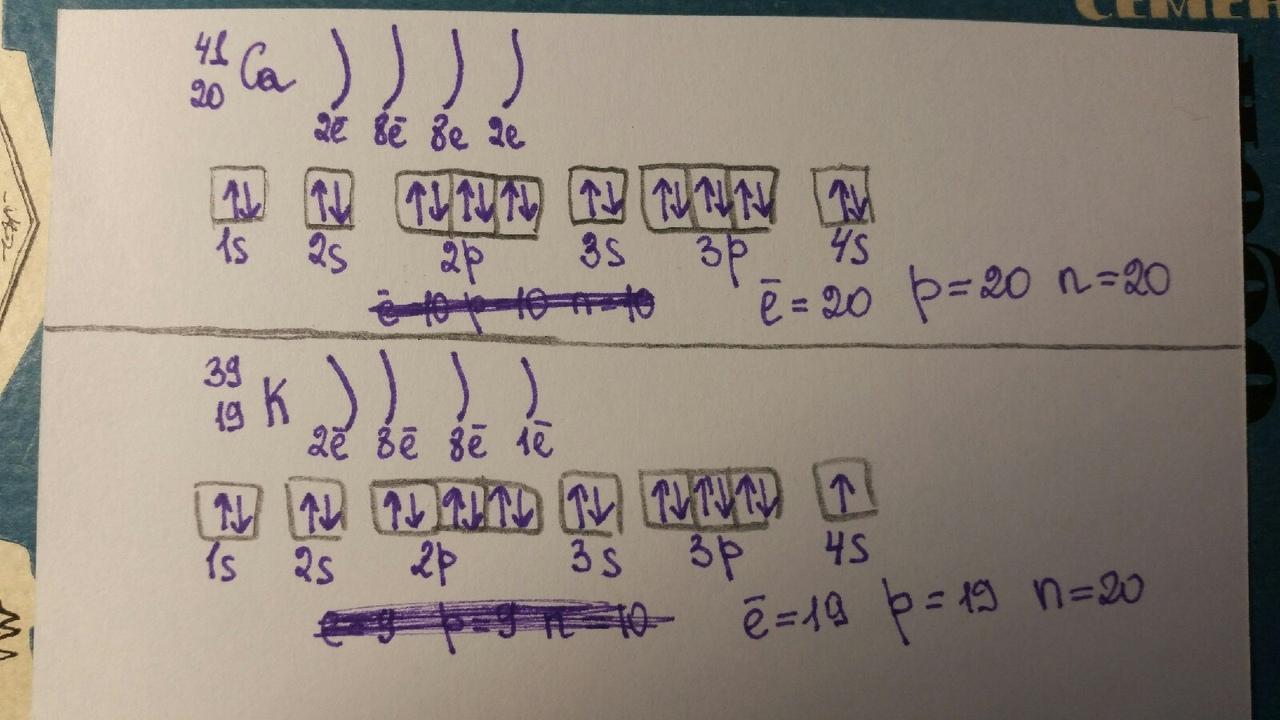 СЕМЕН
41
20 Ca
2ē 8ē 8e 2e
↑↓ ↑↓ ↑↓ ↑↓ ↑↓ ↑↓ ↑↓ ↑↓ ↑↓ ↑↓
1s 2s 2p 3s 3p 4s
ē=10 p=10 n=10
ē=20 p=20 n=20
39
19 K
2ē 8ē 8ē 1ē
↑↓ ↑↓ ↑↓ ↑↓ ↑↓ ↑↓ ↑↓ ↑↓ ↑↓ ↑
1s 2s 2p 3s 3p 4s
ē=9 p=9 n=10
ē=19 p=19 n=20